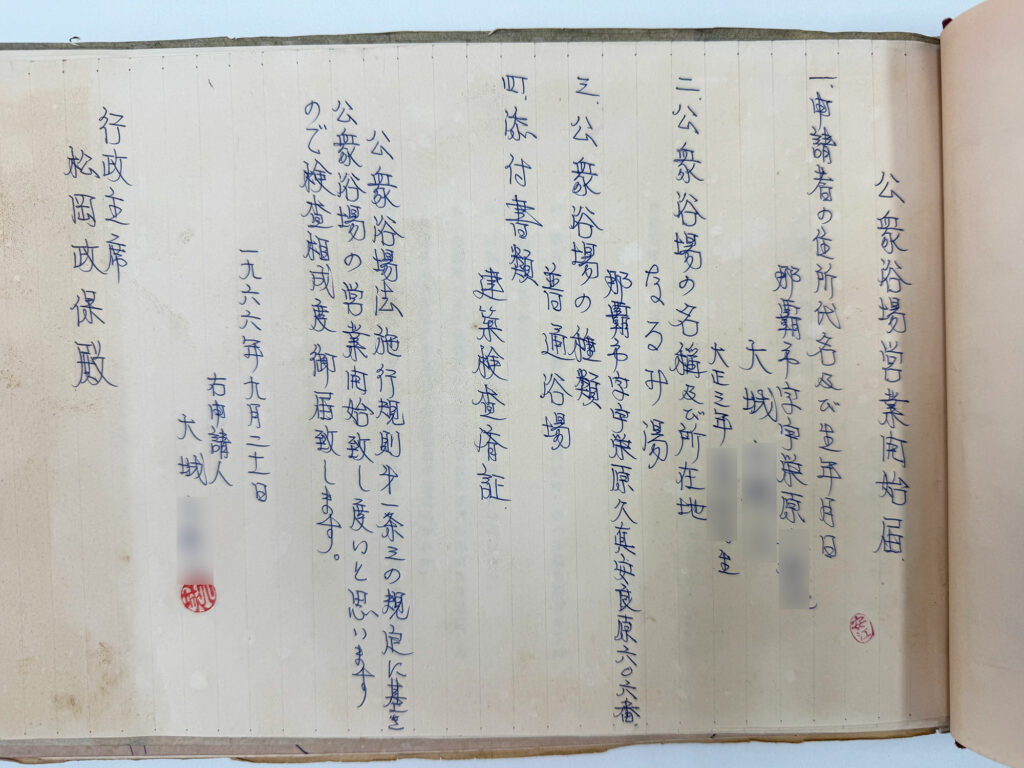 公衆浴場営業開始届
一、申請者の住所氏名及び生年月日
那覇市字宇栄原
大城
大正三年
生
二、公衆浴場の名称及び所在地
なるみ湯
那覇市字宇栄原久真安良原六〇六番
三、公衆浴場の種類
普通浴場
四、添付書類
建築検査済証
公衆浴場法施行規則才一条三の規定に基き
公衆浴場の営業開始致し度いと思います
ので検査相成度御届致します。
一九六六年九月二十一日
右申請人
大城
行政主席
松岡政保殿
安江